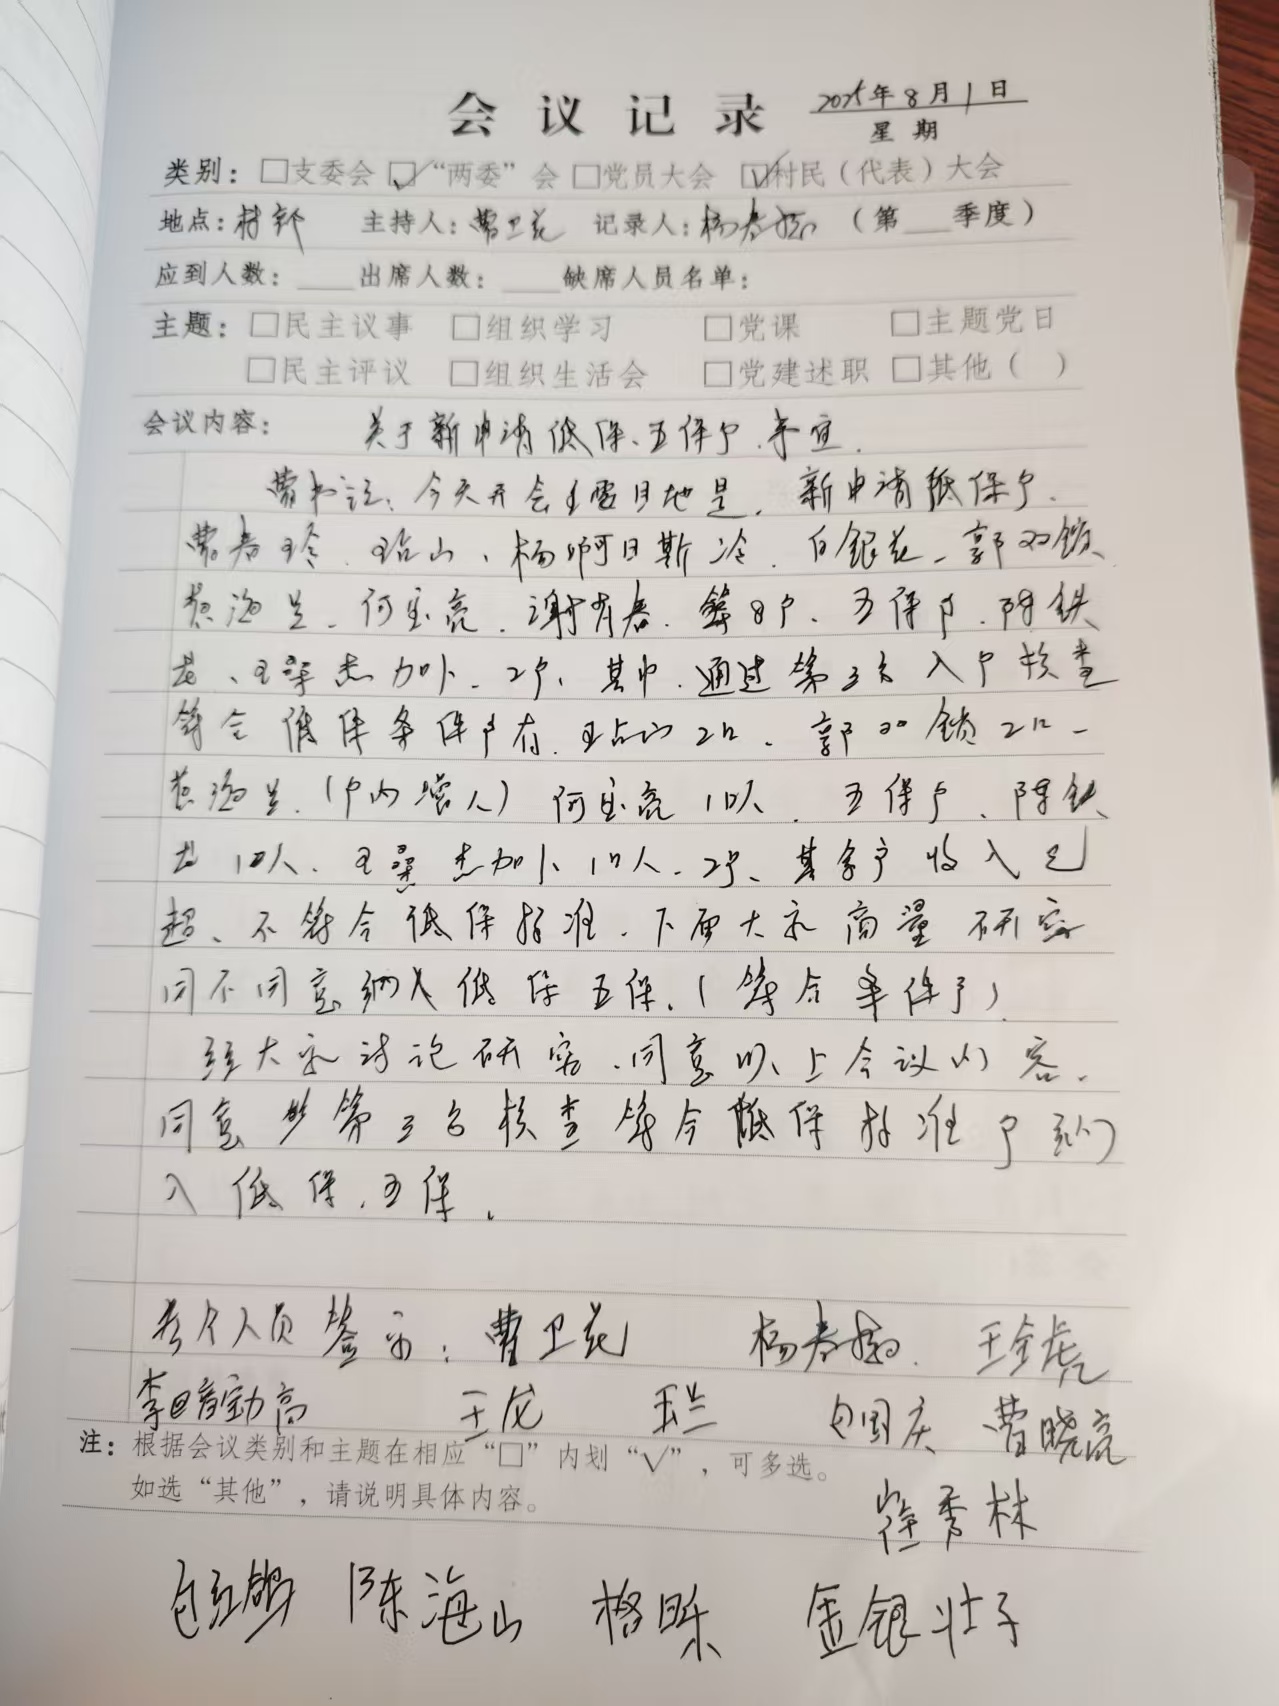 会议记录 2025年8月1日
星期
类别：□支委会 ☑“两委”会 □党员大会 ☑村民（代表）大会
地点：村部 主持人：曹卫花 记录人：杨春 （第___季度）
应到人数：____出席人数：____缺席人员名单：
主题：□民主议事 □组织学习 □党课 □主题党日
□民主评议 □组织生活会 □党建述职 □其他（ ）
会议内容：关于新申请低保、五保户.事宜.
曹书记：今天开会主要目地是.新申请低保户.
曹春玲.王占山、杨阿日斯冷.白银花.郭双锁
海兰.何宝亮.谢有春.等8户.五保户.陈铁
、王桑杰加卜.2户、其中.通过第三方入户核查
符合低保条件户有.王占山2口、郭双锁2口-
海兰.(户内增人)何宝亮1口人.五保户、陈铁
1口人.王桑杰加卜1口人.2户、其余户收入已
超、不符合低保标准.下面大家商量研究
同不同意纳入低保五保.(符合条件户)
经大家讨论研究.同意以上会议内容.
同意 第三方核查符合低保标准户纳
入低保.五保.
参会人员签字：曹卫花 杨春 王金虎
李 宝高 王龙 玉兰 白国庆 曹晓亮
注：根据会议类别和主题在相应“□”内划“√”，可多选。
如选“其他”，请说明具体内容。
崔秀林
白红鸽 陈海山 格日乐 金银壮子